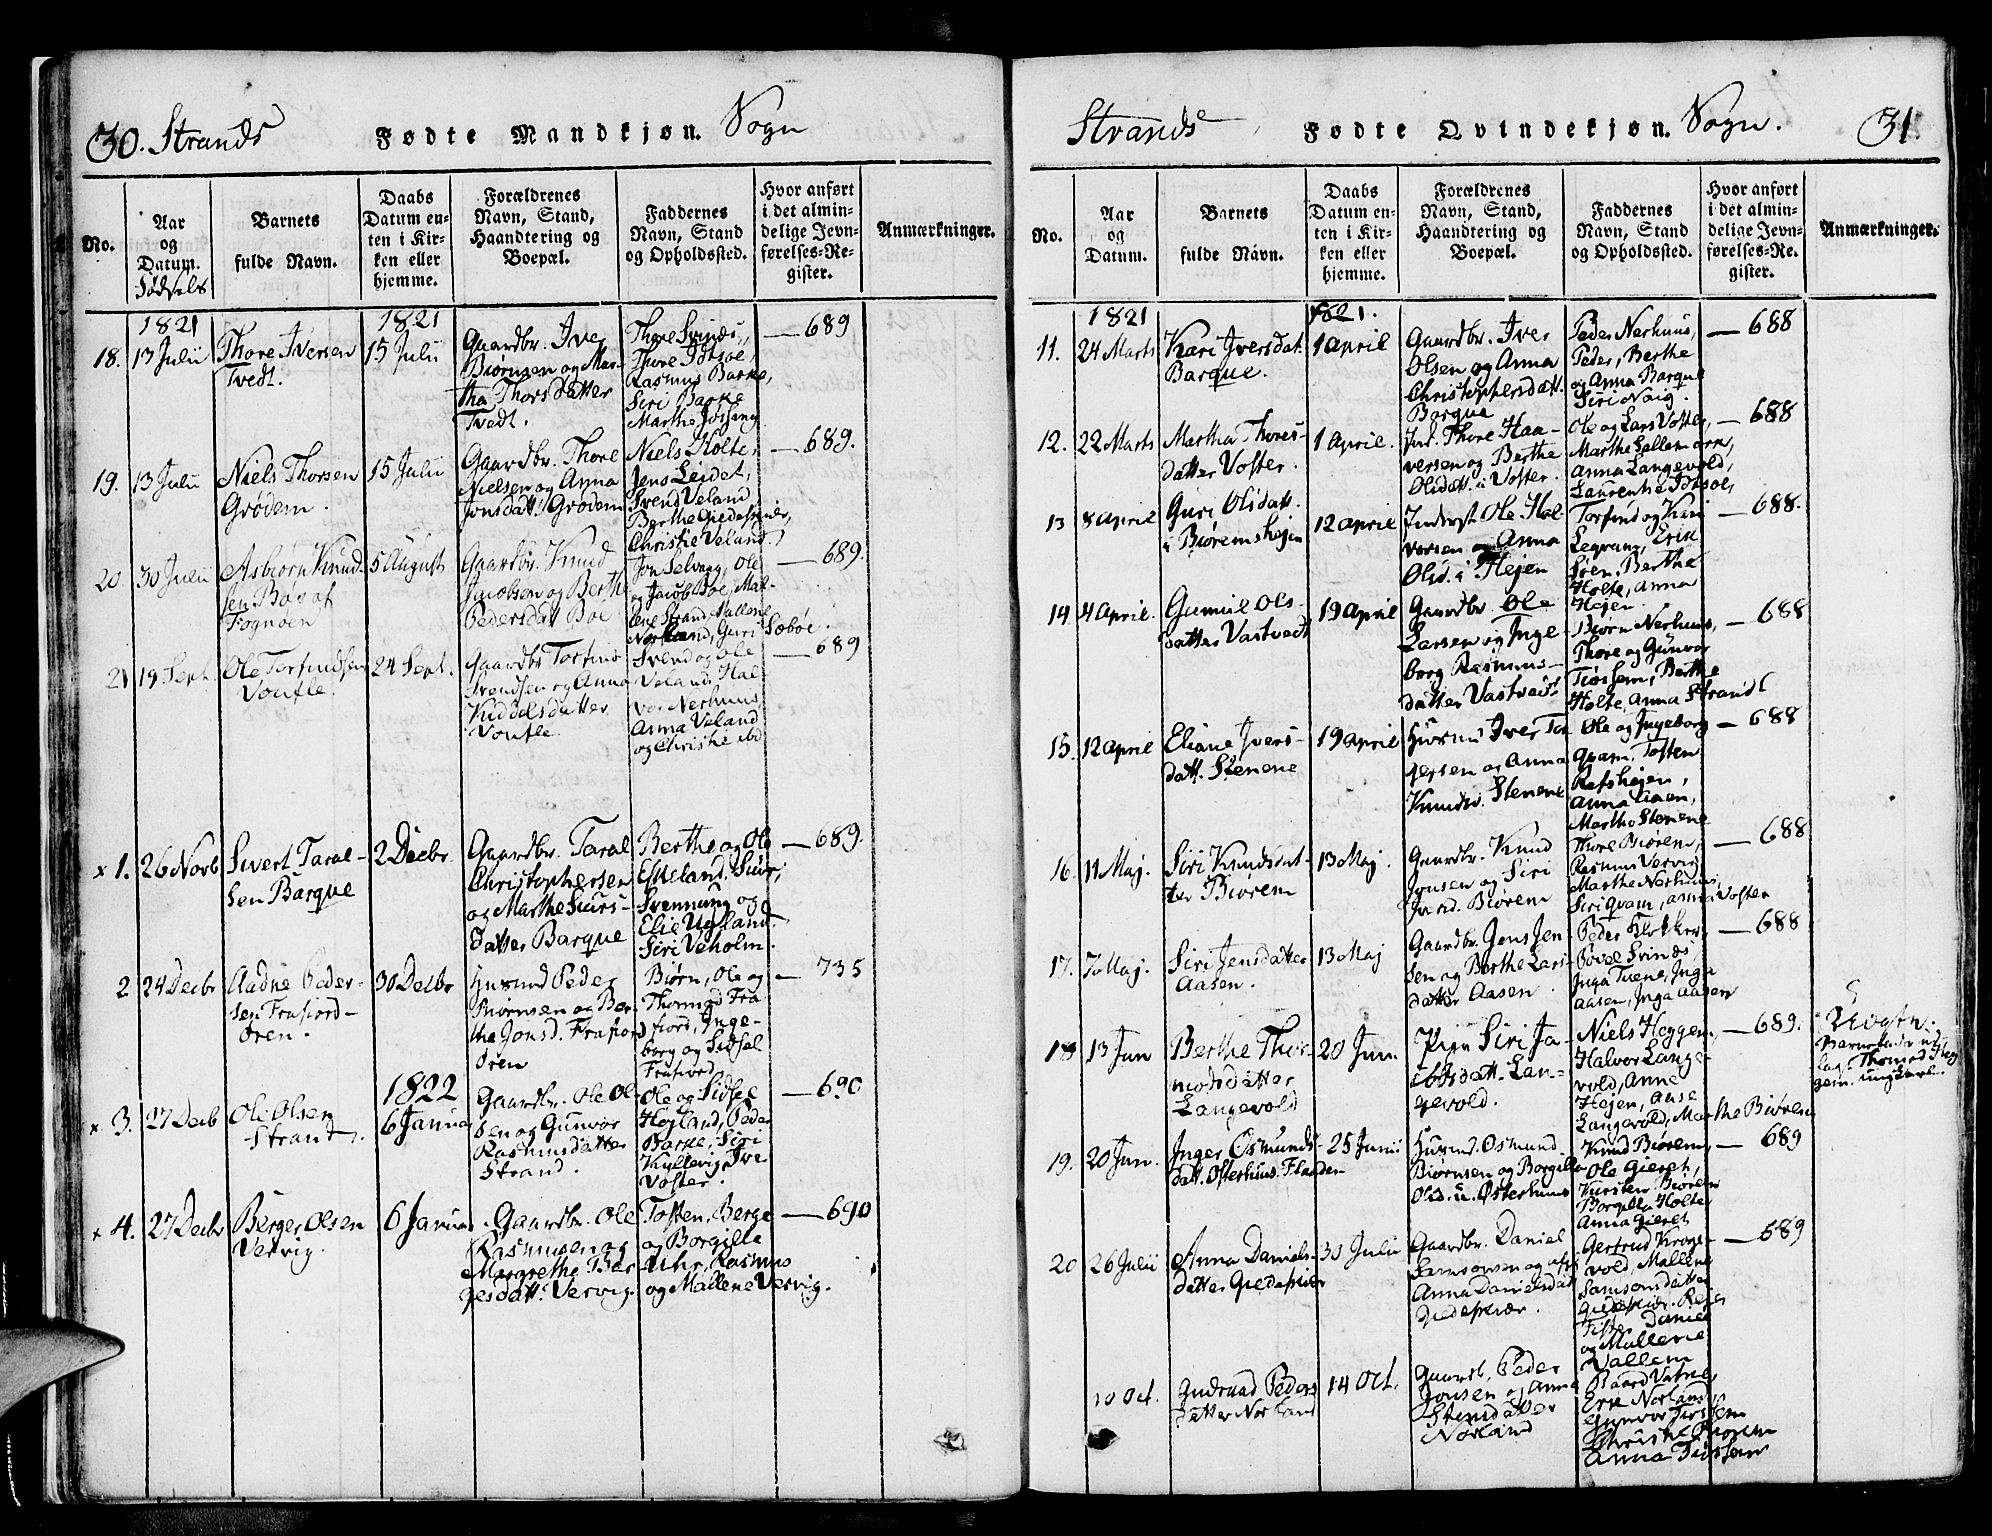 30. Strands Fødte Mandkjøn. Sogn
No.
Aar og Datum. Fødsels
Barnets fulde Navn.
Daabs Datum enten i Kirken eller hjemme.
Forældrenes Navn, Stand, Haandtering og Boepæl.
Faddernes Navn, Stand og Opholdssted.
Hvor anført i det almindelige Jevnførelses-Register.
Anmærkninger.
1821
1821
18. 13 Julii
Thore Iversen
Tvedt.
15 Julii
Gaardbr. Ive
Biørnsen og Mar-
tha Thorsdatter
Tvedt.
Thore Svinds,
Thore Idtsoe,
Rasmus Barke,
Siri Barke
Marthe Jøssing
689
19. 13 Julii
Niels Thorsen
Grødem.
15 Julii
Gaardbr. Thore
Nielsen og Anna
Jonsdatt. Grødem
Niels Holte,
Jens Leidet,
Svend Veland
Berthe Giedeskier,
Christie Veland
689.
20. 30 Julii
Asbiørn Knud-
sen Boe af
Fognøen
5 August
Gaardbr. Knud
Jacobsen og Berthe
Pedersdat Boe
Jon Selvaag, Ole
og Jacob Boe, Mal-
ene Strand, Mallene
Norland, Guri Søbøe.
689.
21 19 Sept
Ole Torfindsen
Voufle.
24 Sept.
Gaardbr Torfind
Svendsen og Anna
Kiddelsdatter
Voufle.
Svend og Ole
Veland, Hal-
vor Nerhuus,
Anna Veland
og Christie ibd
689
x 1. 26 Novb
Sivert Taral-
sen Barque
2 Decbr
Gaardbr. Taral
Christophersen
og Marthe Siurs-
datter Barque
Berthe og Ole
Eskeland, Siur,
Svennung og
Elie Ugland.
Siri Veholm.
689.
2 24 Decbr
Aadne Peder-
sen Frafiord-
øren.
30 Decbr
Huusmd Peder
Thiørnsen og Ber-
the Jonsd. Frafiord
øren
Biørn, Ole og
Thormod Fra
fiord, Inge-
borg og Sidsel
Frafiord
735
1822
x 3. 27 Decb
Ole Olsen
Strand.
6 Janua
Gaardbr. Ole Ol-
sen og Gunvor
Rasmusdatter
Strand.
Ole og Sidsel
Høgland, Peder
Barke, Siri
Kyllevig, Ive
Voster.
690
x 4. 27 Decbr
Berger Olsen
Vervig.
6 Janua
Gaardbr. Ole
Rasmusen og
Margrethe Bør
gesdatt. Vervig
Tosten, Berge
og Borgille
Uhr, Rasmus
og Mallene Vervig.
690
Strands Fødte Qvindekjøn. Sogn. 31.
No.
Aar og Datum.
Barnets fulde Navn.
Daabs Datum enten i Kirken eller hjemme.
Forældrenes Navn, Stand, Haandtering og Boepæl.
Faddernes Navn, Stand og Opholdssted.
Hvor anført i det almindelige Jevnførelses-Register.
Anmærkninger.
1821
1821.
11. 24 Marts
Kari Iversdat.
Barque.
1 April
Gaardbr. Iver
Olsen og Anna
Christophersdatt.
Barque
Peder Nerhuus,
Peder, Berthe
og Anna Barque
Siri Noig.
688
12. 22 Marts
Martha Thores-
datter Voster.
1 April.
Ind. Thore Haa-
versen og Berthe
Olsdatt. i Voster.
Ole og Lars Voster,
Marthe Sallemork,
Anna Langevold,
Laurentse Idtsoe,
688
13 8 April
Guri Olsdatt.
i Biøremshejen
12 April
Inderst. Ole Hal-
vorsen og Anna
Olsd. i Hejen
Torfind og Kari
Legvam, Erik
Søen. Berthe
Holte, Anna
Hejen.
688.
14 4 April.
Gunnil Ols-
datter Vastvedt
19 April
Gaardbr. Ole
Larsen og Inge-
borg Rasmus-
datter Vastvedt
Biørn Nerhuus,
Thore og Gunvor
Tiøssem, Berthe
Holte, Anna Strand
688
15. 12 April
Eliane Ivers-
datt. Stenene
19 April
Huusmd Iver Tor
gersen og Anna
Knudsd. Stenene
Ole og Ingeborg
Qvam, Tosten
Refshejen,
Anna Aaen,
Martha Stenene
688
16. 11 Maj.
Siri Knudsdat-
ter Biørem
13 Maj.
Gaardbr. Knud
Jonsen og Siri
Iversd. Biørem
Thore Biørem,
Rasmus Vervig
Marthe Nerhuus,
Siri Qvam, Anna Voster
688
17. 7 Maj.
Siri Jensdatter
Aasen.
13 Maj
Gaardbr. Jens Jen-
sen og Berthe Lars-
datter Aasen.
Peder Klokker,
Povel Svinds,
Inga Tvene, Inga
Aasen, Inga Aasen
688
18 13 Jun
Berthe Thor-
modsdatter
Langevold
20 Jun.
Pige Siri Ja-
cobsdatt. Lan-
gevold.
Niels Heggem,
Halvor Lange-
vold, Anne
Hejen, Anse
Langevold, Marthe Biørem
689.
Uægte.
19. 20 Jun.
Inger Osmunds-
datt. Osterhus. Fladen
25 Junii
Huusmd Osmund
Biørnsen og Borgilla
Olsd. u. Østerhuus
Knud Biørem,
Ole Gieret,
Kirsten Biørem
Borgilla Holte
Anna Gieret
689
20 26 Julii
Anna Daniels-
datter Giedeskier
30 Julii
Gaardbr. Daniel
Samsonsen og
Anna Danielsdat
Giedeskiær.
Gertrud Kroge-
vold, Mallene
Samsondatter
Giedeskiær. Reier
Fister, Daniel
og Mallene
Vallem
689
10 Oct.
Gudruud Peders
datter Norland
14 Oct.
Gaardb. Peder
Jonsen og Anna
Stensdatter
Norland
Baard Vatne,
Erik Norland,
Gunvor Tiøssem
Christie Biørem
Anna Tiøssem